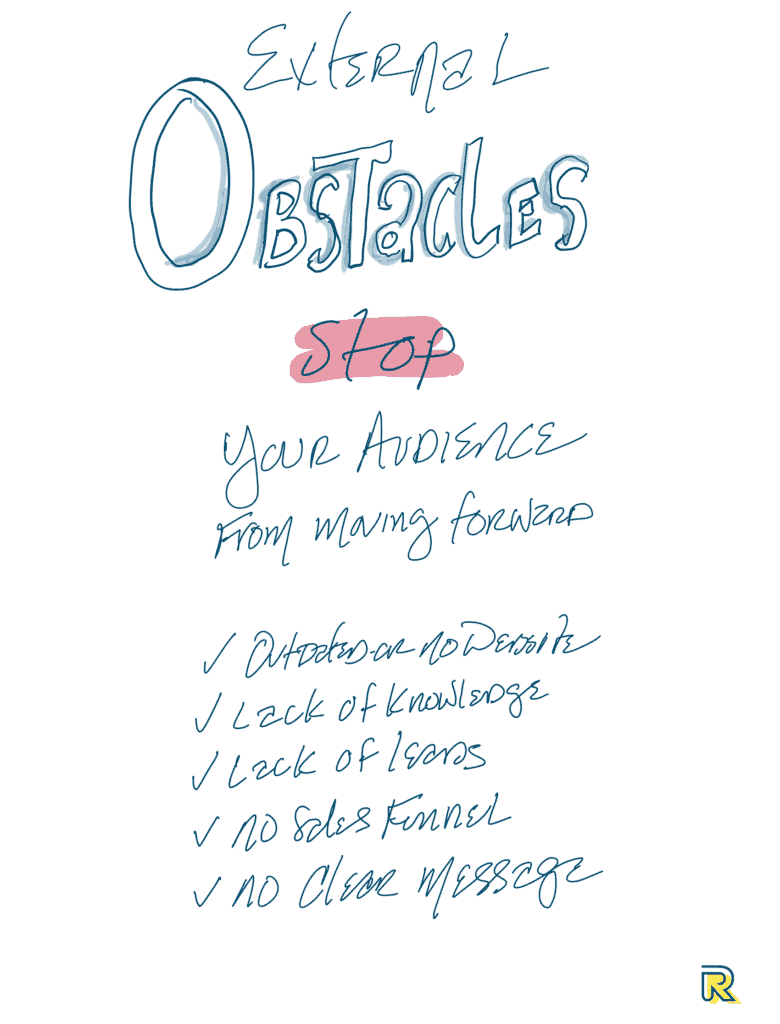 External
Obstacles
Stop
Your Audience
From moving forward
✓ Outdated or no Website
✓ Lack of Knowledge
✓ Lack of leads
✓ no Sales Funnel
✓ no Clear Message
R